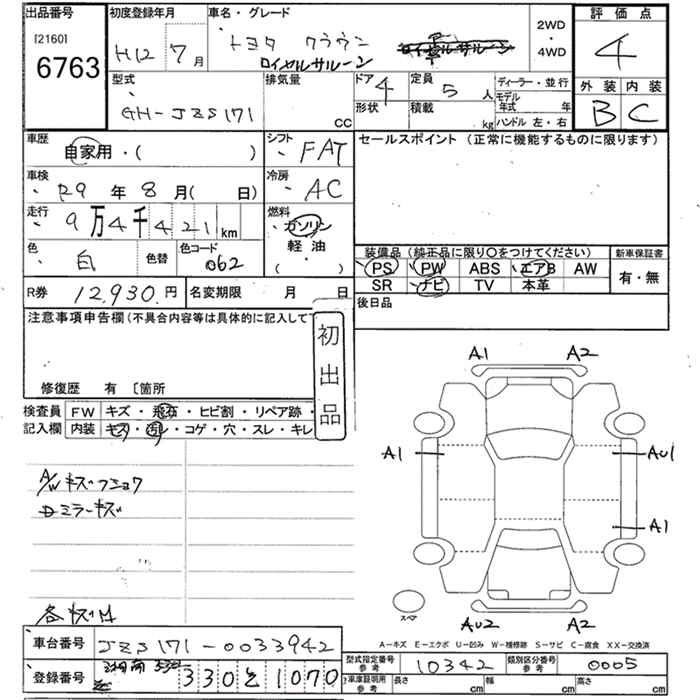 出品番号
[2160]
6763
初度登録年月
H12 7月
車名・グレード
トヨタ クラウン
ロイヤルサルーン
2WD
・
4WD
評価点
4
外装 内装
B C
型式
GH-JZS171
排気量
CC
ドア
4
形状
定員
5 人
積載
kg
ディーラー・並行
モデル年式 年
ハンドル 左・右
車歴
自家用・( )
シフト
FAT
セールスポイント (正常に機能するものに限ります)
車検
R9 年 8 月( 日)
冷房
AC
走行
9万4千421km
燃料
ガソリン
軽油
( )
色
白
色替
色コード
062
装備品 (純正品に限り○をつけてください)
PS PW ABS エアB AW
SR ナビ TV 本革
新車保証書
有・無
R券 12,930円
名変期限 月 日
後日品
注意事項申告欄(不具合内容等は具体的に記入して
初出品
修復歴 有 〔箇所
検査員
記入欄
FW キズ・飛石・ヒビ割・リペア跡・
内装 キズ・汚レ・コゲ・穴・スレ・キレ
A/Wキズフショク
Dミラーキズ
A1 A2
A1 AU1
A1
AU2 A2
スペア
A-キズ E-エクボ U-凹み W-補修跡 S-サビ C-腐食 XX-交換済
車台番号 JZS171-0033942
登録番号 湘南 330 と 1070
型式指定番号 参考 10342
類別区分番号 参考 0005
車庫証明 参考 長さ cm 幅 cm 高さ cm